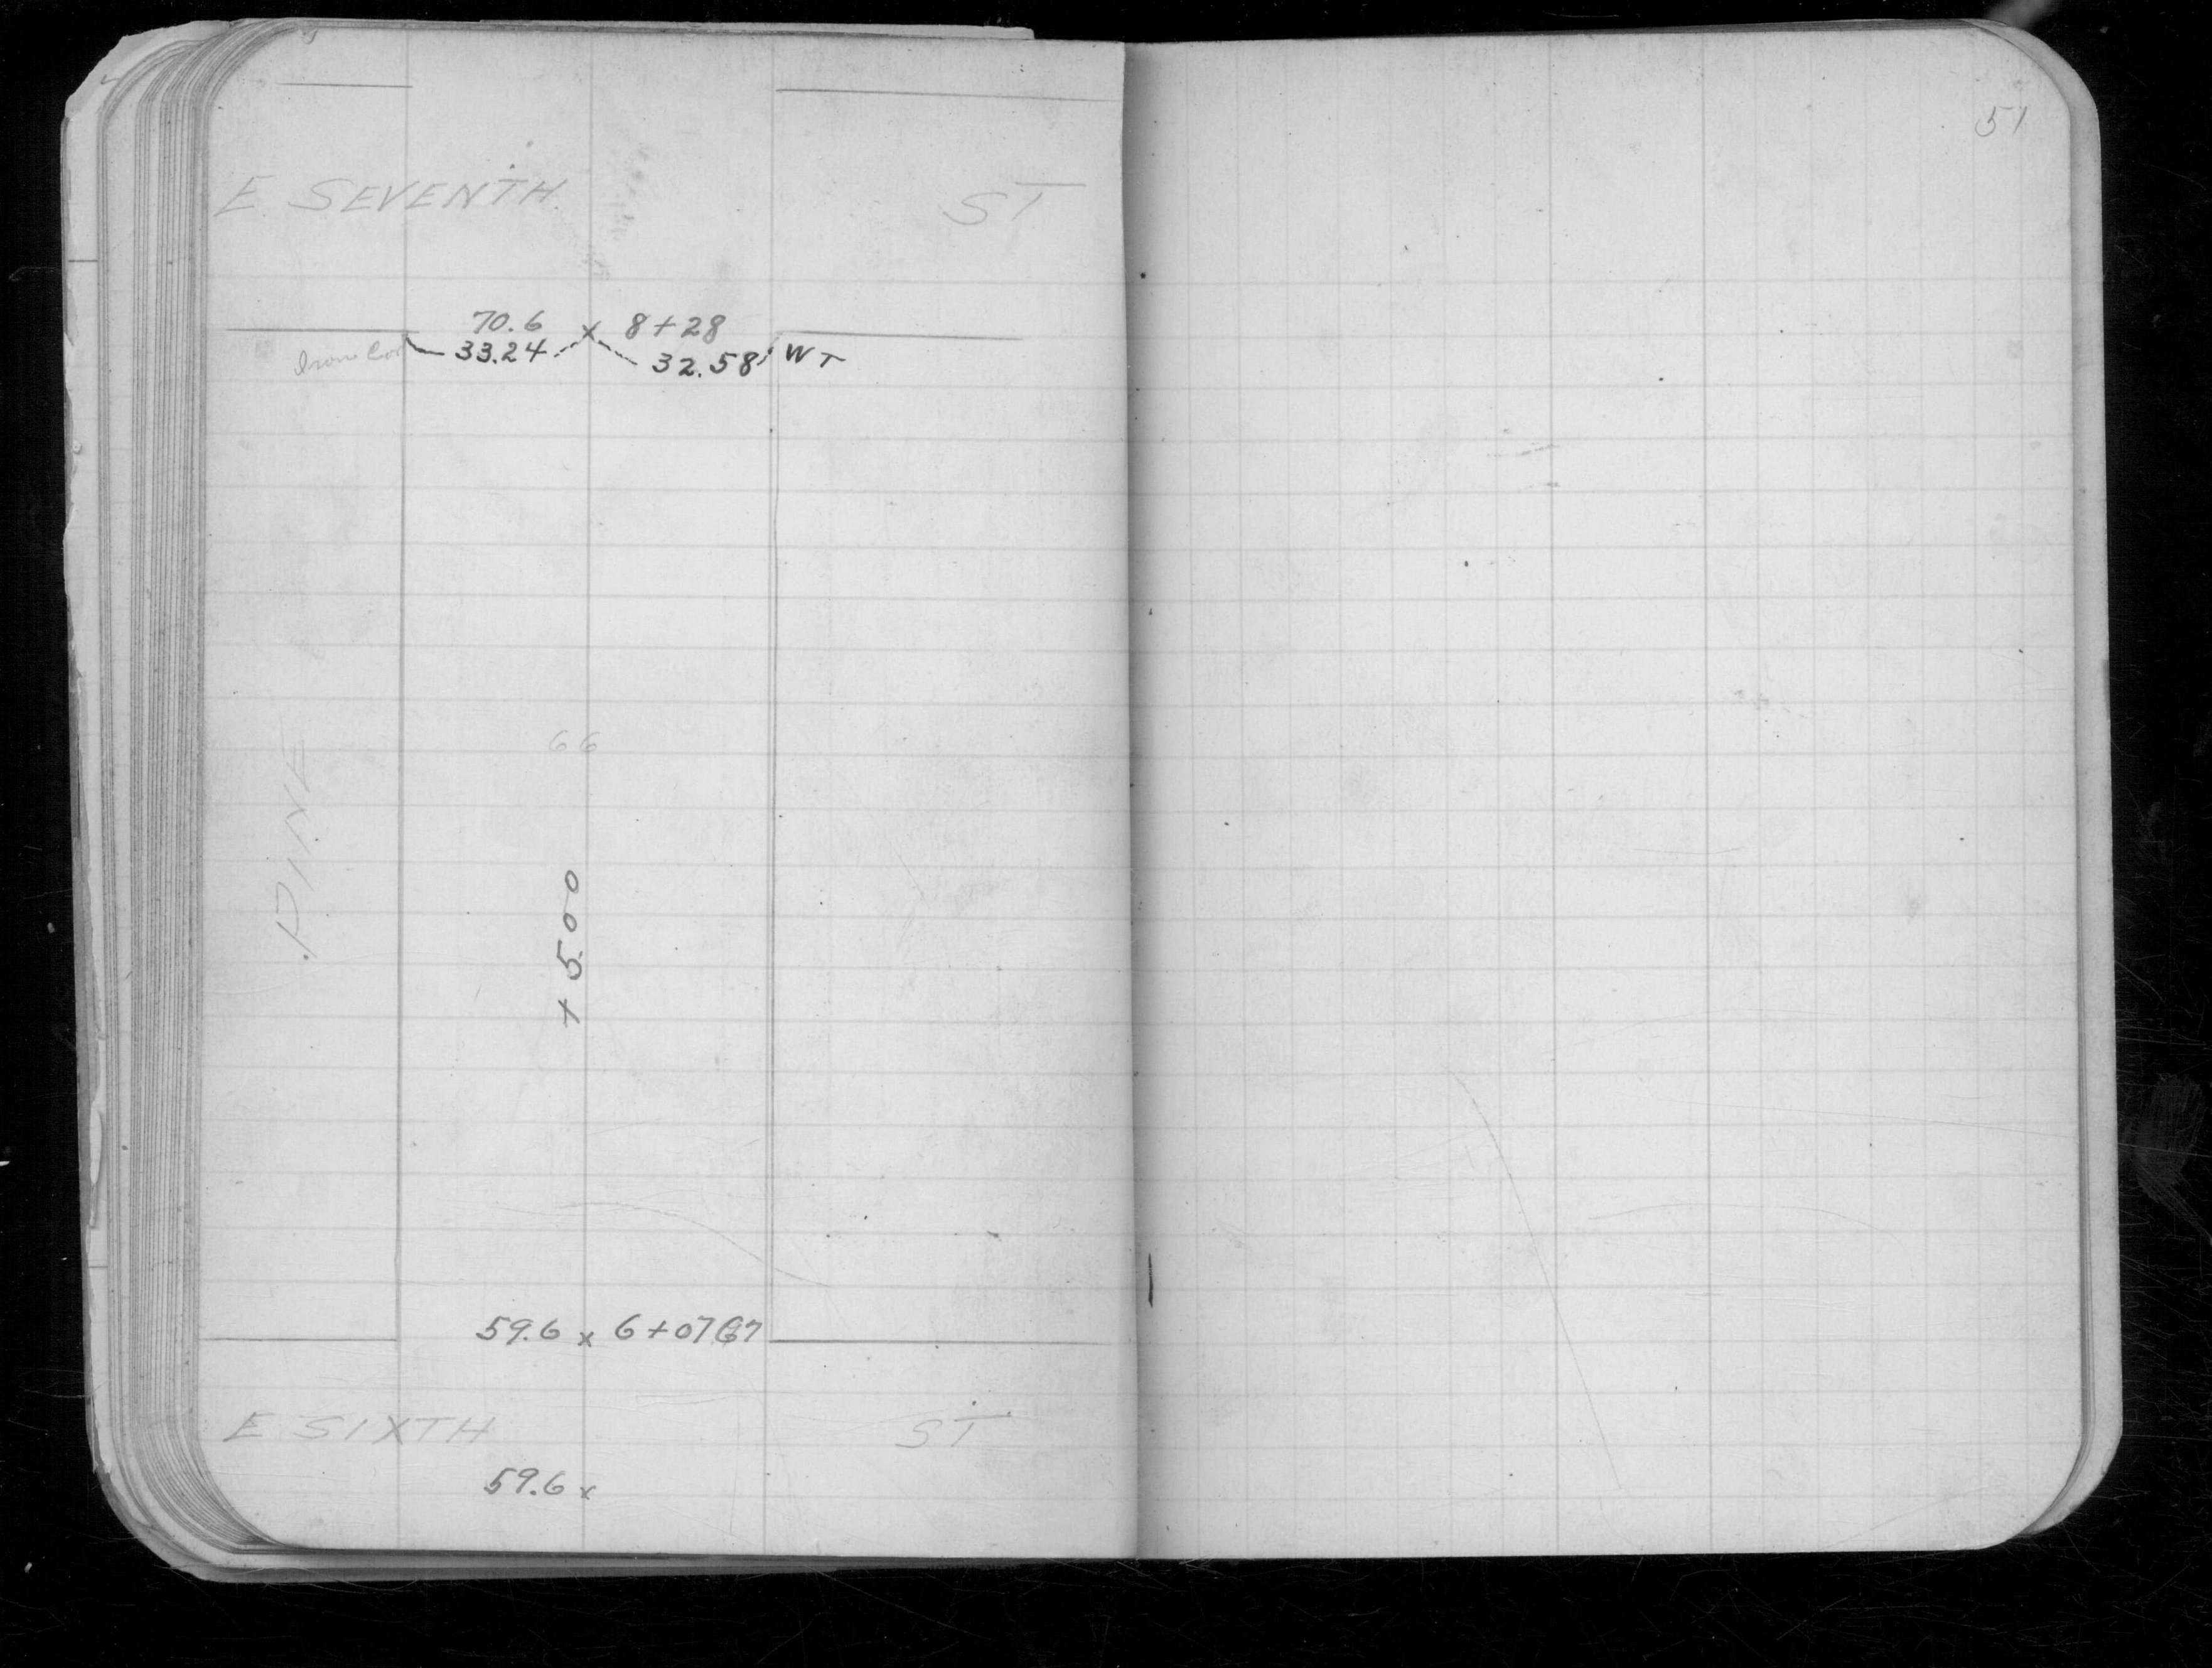 51
E. SEVENTH. ST
70.6 x 8+28
Iron Cor 33.24 32.58 WT
66
PINE
+ 5.00
59.6 x 6+07.67
E SIXTH ST
59.6 x